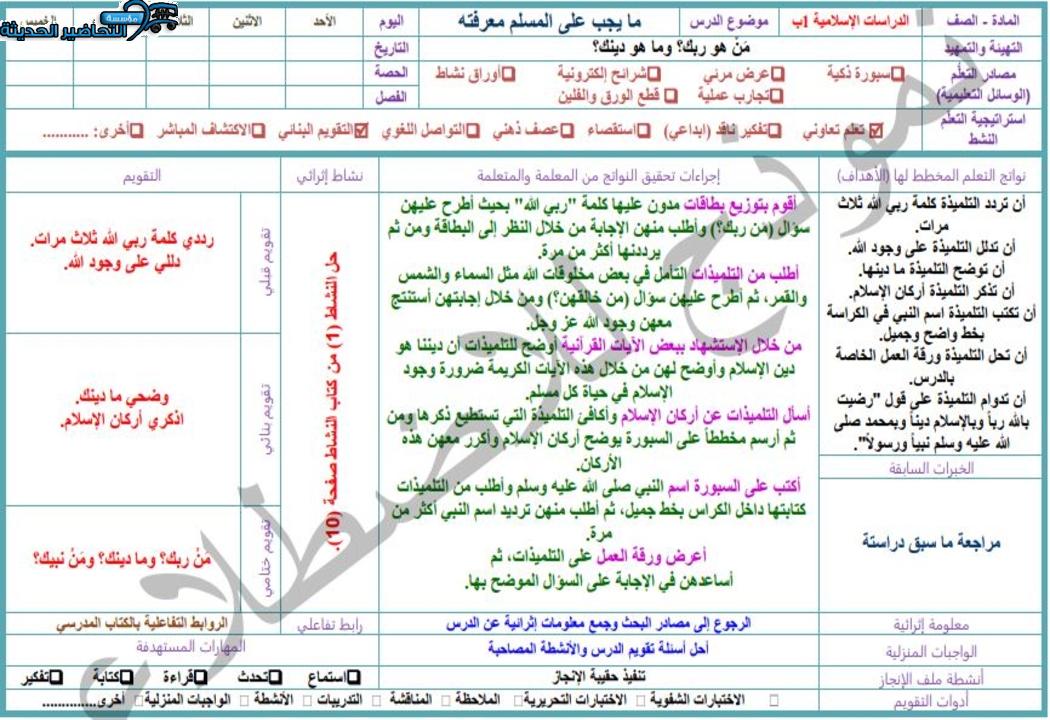 المادة - الصف
الدراسات الإسلامية 1ب
موضوع الدرس
ما يجب على المسلم معرفته
اليوم
الأحد
الاثنين
مؤسسة
التحاضير الحديثة
التهيئة والتمهيد
مَنْ هو ربك؟ وما هو دينك؟
التاريخ
مصادر التعلّم
(الوسائل التعليمية)
سبورة ذكية
عرض مرئي
شرائح إلكترونية
أوراق نشاط
تجارب عملية
قطع الورق والفلين
الحصة
الفصل
استراتيجية التعلّم
النشط
تعلم تعاوني
تفكير ناقد (ابداعي)
استقصاء
عصف ذهني
التواصل اللغوي
التقويم البنائي
الاكتشاف المباشر
أخرى: ...........
نواتج التعلم المخطط لها (الأهداف)
إجراءات تحقيق النواتج من المعلمة والمتعلمة
نشاط إثرائي
التقويم
أن تردد التلميذة كلمة ربي الله ثلاث
مرات.
أن تدلل التلميذة على وجود الله.
أن توضح التلميذة ما دينها.
أن تذكر التلميذة أركان الإسلام.
أن تكتب التلميذة اسم النبي في الكراسة
بخط واضح وجميل.
أن تحل التلميذة ورقة العمل الخاصة
بالدرس.
أن تداوم التلميذة على قول "رضيت
بالله رباً وبالإسلام ديناً وبمحمد صلى
الله عليه وسلم نبياً ورسولاً".
الخبرات السابقة
مراجعة ما سبق دراستة
أقوم بتوزيع بطاقات مدون عليها كلمة "ربي الله" بحيث أطرح عليهن
سؤال (مَن ربك؟) وأطلب منهن الإجابة من خلال النظر إلى البطاقة ومن ثم
يرددنها أكثر من مرة.
أطلب من التلميذات التأمل في بعض مخلوقات الله مثل السماء والشمس
والقمر، ثم أطرح عليهن سؤال (من خالقهن؟) ومن خلال إجابتهن أستنتج
معهن وجود الله عز وجل.
من خلال الإستشهاد ببعض الآيات القرآنية أوضح للتلميذات أن ديننا هو
دين الإسلام وأوضح لهن من خلال هذه الآيات الكريمة ضرورة وجود
الإسلام في حياة كل مسلم.
أسأل التلميذات عن أركان الإسلام وأكافئ التلميذة التي تستطيع ذكرها ومن
ثم أرسم مخططاً على السبورة يوضح أركان الإسلام وأكرر معهن هذه
الأركان.
أكتب على السبورة اسم النبي صلى الله عليه وسلم وأطلب من التلميذات
كتابتها داخل الكراس بخط جميل، ثم أطلب منهن ترديد اسم النبي أكثر من
مرة.
أعرض ورقة العمل على التلميذات، ثم
أساعدهن في الإجابة على السؤال الموضح بها.
حل النشاط (1) من كتاب النشاط صفحة (10).
تقويم قبلي
رددي كلمة ربي الله ثلاث مرات.
دللي على وجود الله.
تقويم بنائي
وضحي ما دينك.
اذكري أركان الإسلام.
تقويم ختامي
مَنْ ربك؟ وما دينك؟ ومَنْ نبيك؟
معلومة إثرائية
الرجوع إلى مصادر البحث وجمع معلومات إثرائية عن الدرس
رابط تفاعلي
الروابط التفاعلية بالكتاب المدرسي
الواجبات المنزلية
أحل أسئلة تقويم الدرس والأنشطة المصاحبة
المهارات المستهدفة
أنشطة ملف الإنجاز
تنفيذ حقيبة الإنجاز
استماع
تحدث
قراءة
كتابة
تفكير
أدوات التقويم
الاختبارات الشفوية
الاختبارات التحريرية
الملاحظة
المناقشة
التدريبات
الأنشطة
الواجبات المنزلية
أخرى..............
نموذج للاطلاع